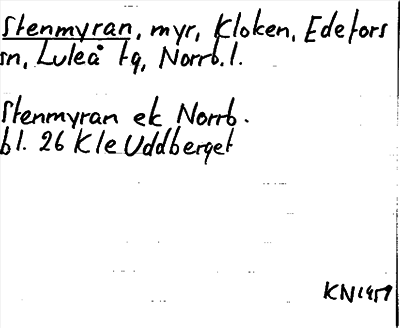 Stenmyran, myr, Kloken, Edefors
sn, Luleå tg, Norrb.l.
Stenmyran ek Norrb.
bl. 26 Kle Uddberget
KN 1959